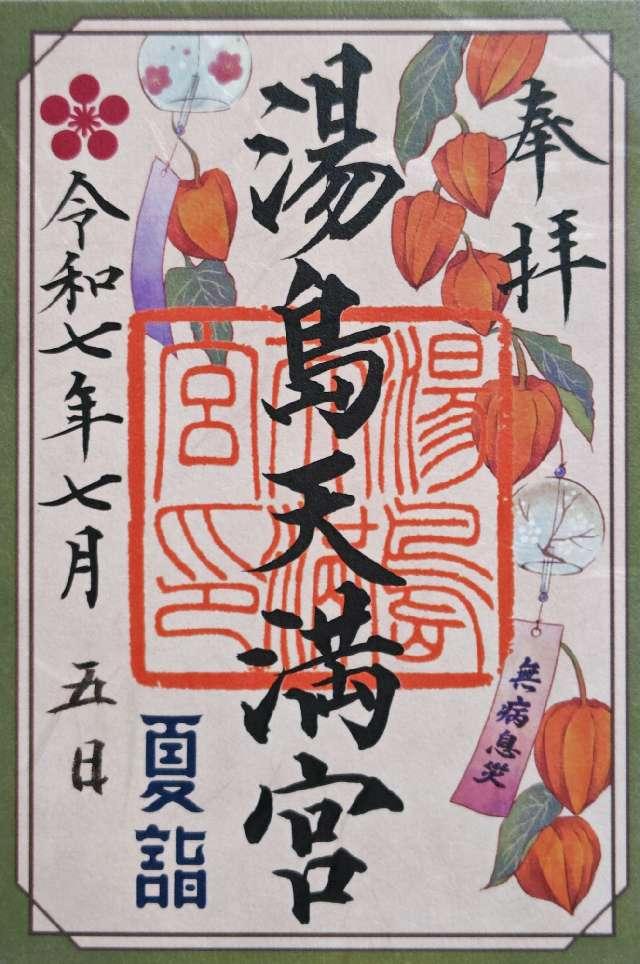 奉拝
湯島天満宮
湯島
天満
宮印
無病息災
夏詣
令和七年七月五日